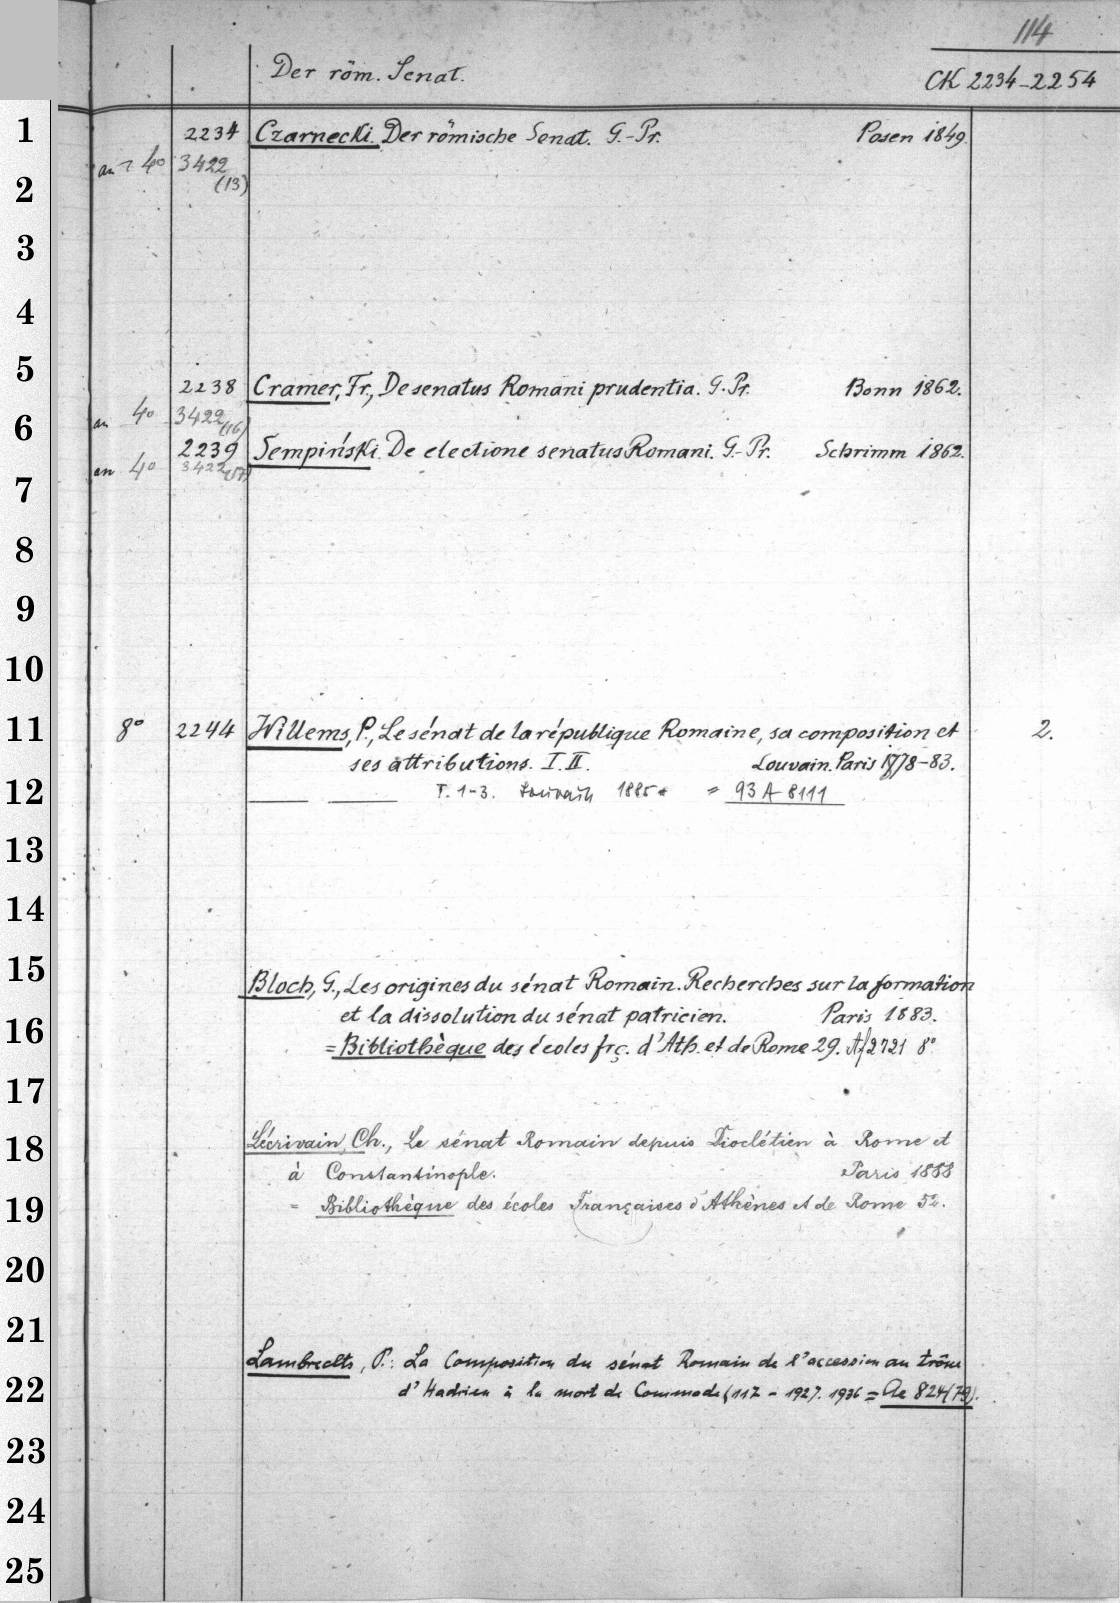 114
Der röm. Senat.
CK 2234-2254
1
2234 Czarnecki. Der römische Senat. G.-Pr. Posen 1849.
an 4° 3422
(13)
2
3
4
5
2238 Cramer, Fr., De senatus Romani prudentia. G.-Pr. Bonn 1862.
an 4° 3422 (16)
6
2239 Sempiński. De electione senatus Romani. G.-Pr. Schrimm 1862.
an 4° 3422
7
8
9
10
11 8° 2244 Willems, P., Le sénat de la république Romaine, sa composition et 2.
ses attributions. I. II. Louvain. Paris 1778-83.
12 T. 1-3. Louvain 1885 = 93 A 8111
13
14
15
Bloch, G., Les origines du sénat Romain. Recherches sur la formation
16 et la dissolution du sénat patricien. Paris 1883.
= Bibliothèque des écoles frç. d'Ath. et de Rome 29. Af 2721 8°
17
18 Lécrivain, Ch., Le sénat Romain depuis Dioclétien à Rome et
à Constantinople. Paris 1888
19 = Bibliothèque des écoles Françaises d'Athènes et de Rome 52.
20
21
Lambrechts, P.: La Composition du sénat Romain de l'accession au trône
22 d'Hadrien à la mort de Commode (117 - 192). 1936 = Ae 824 (79).
23
24
25